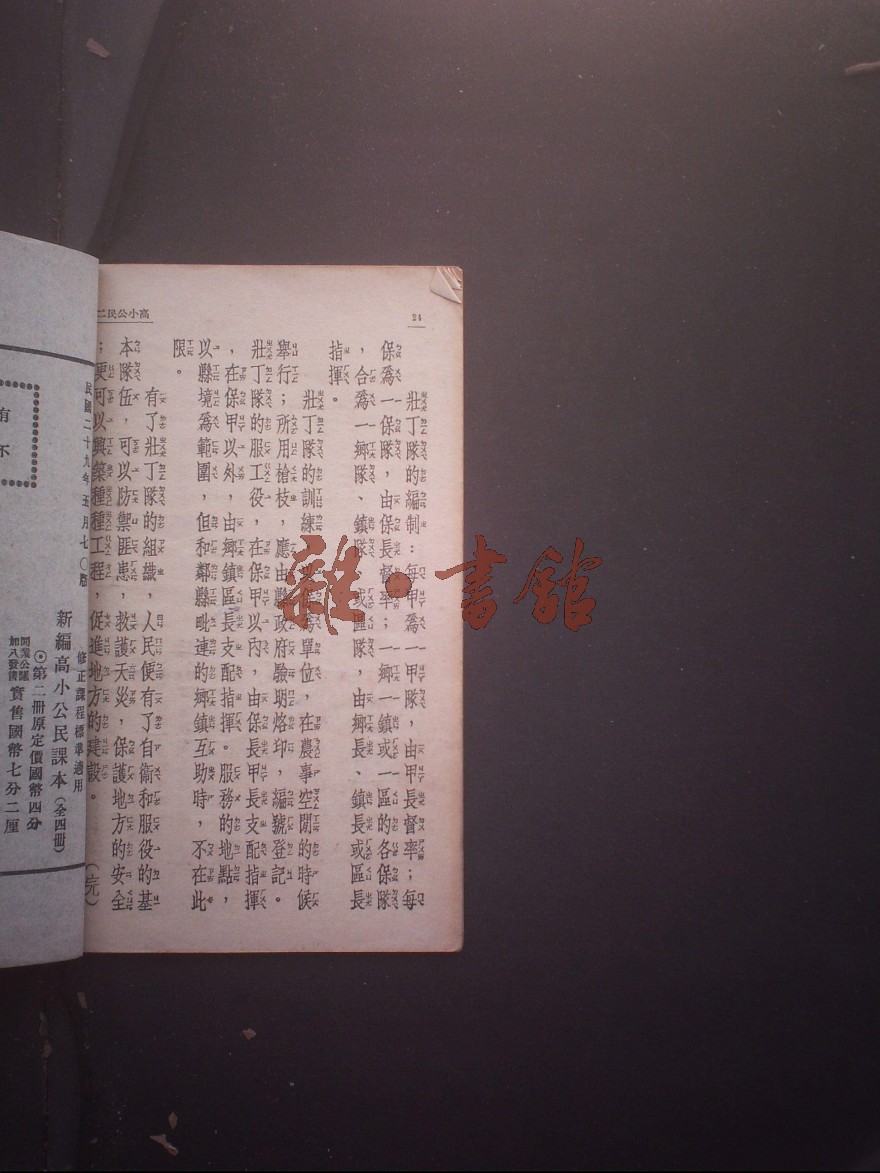 24
高小公民二
壯丁隊的編制：每甲爲一甲隊，由甲長督率；每
保爲一保隊，由保長督率；一鄉一鎮或一區的各保隊
，合爲一鄉隊、鎮隊、或區隊，由鄉長、鎮長或區長
指揮。
壯丁隊的訓練，以保爲單位，在農事空閒的時候
舉行；所用槍枝，應由縣政府驗明烙印，編號登記。
壯丁隊的服工役，在保甲以內，由保長甲長支配指揮
，在保甲以外，由鄉鎮區長支配指揮。服務的地點，
以縣境爲範圍，但和鄰縣毗連的鄉鎮互助時，不在此
限。
有了壯丁隊的組織，人民便有了自衛和服役的基
本隊伍，可以防禦匪患，救護天災，保護地方的安全
；更可以興築種種工程，促進地方的建設。（完）
民國二十九年五月七〇版
修正課程標準適用
新編高小公民課本（全四冊）
⊙第二冊原定價國幣四分
同業公議
加八發售
實售國幣七分二厘
有
不
雜·書館